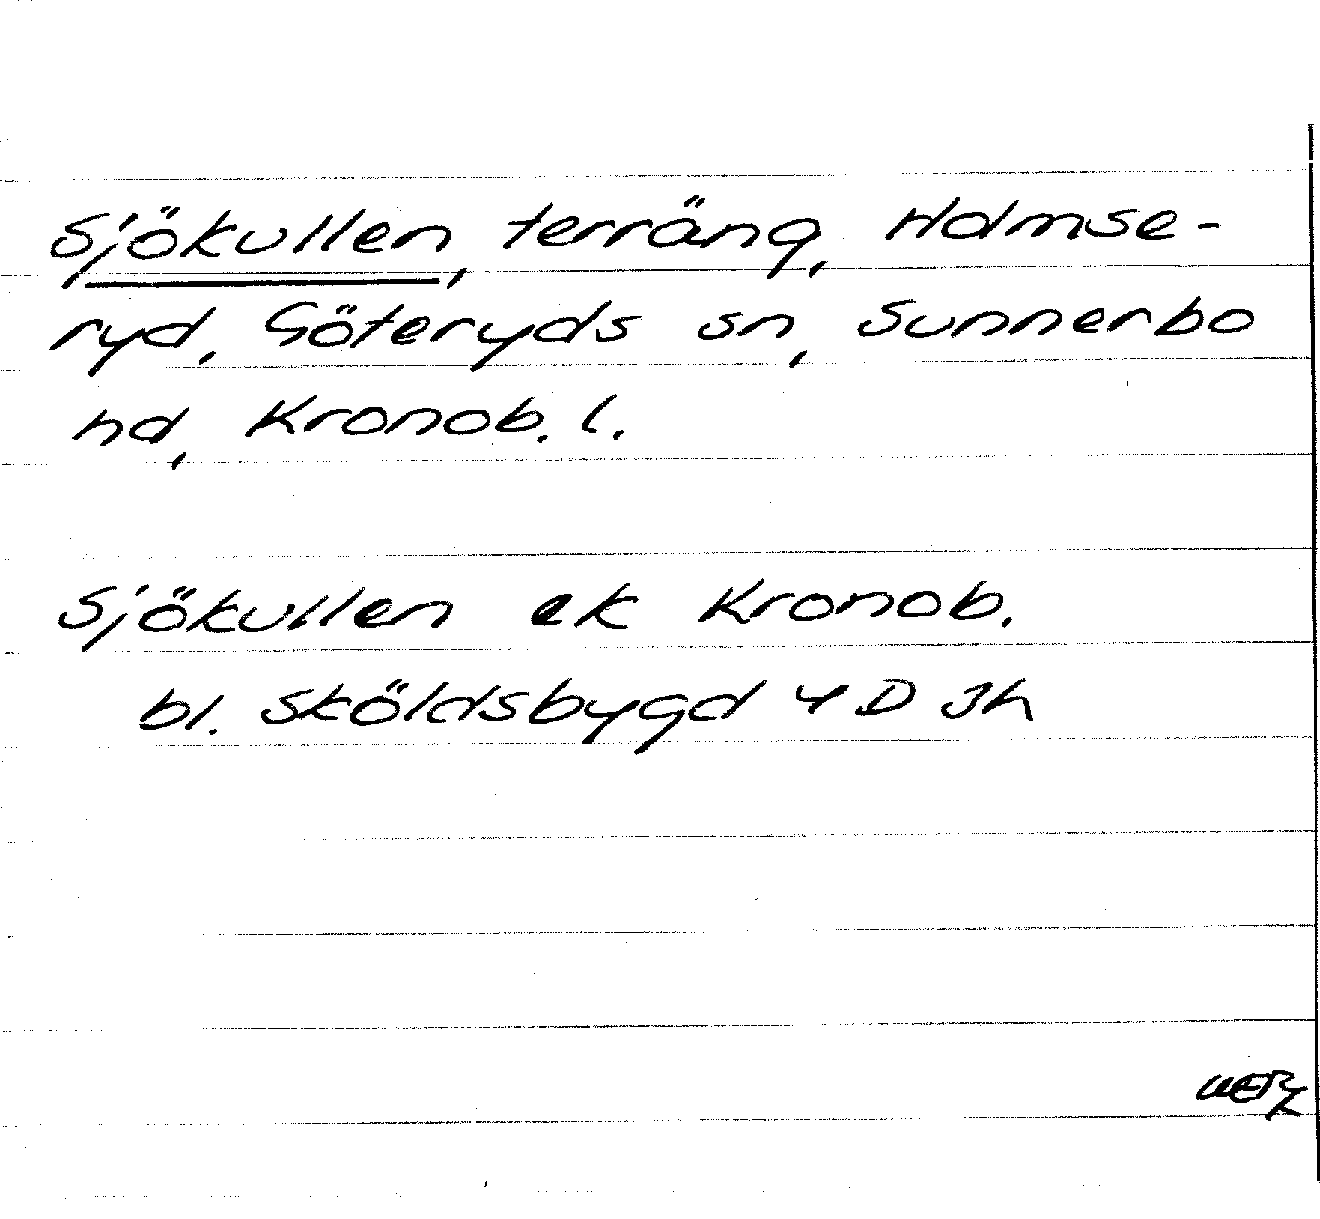 Sjökullen, terräng, Holmse-
ryd, Göteryds sn, Sunnerbo
hd, Kronob. l.
Sjökullen ek Kronob.
bl. Sköldsbygd 4 D 3h